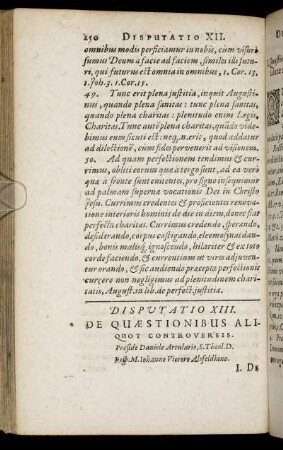 250 DISPUTATIO XII.
omnibus modis perficiamur in nobis, cùm visuri
simus Deum a facie ad faciem, similes illi futu-
ri, qui futurus est omnia in omnibus, 1. Cor. 13.
1. Joh. 3. 1. Cor. 15.
49. Tunc erit plena justitia, inquit Augusti-
nus, quando plena sanitas: tunc plena sanitas,
quando plena charitas: plenitudo enim Legis,
Charitas. Tunc autē plena charitas, quādo vide-
bimus eum sicuti est: neq; erit, quod addatur
ad dilectionē, cùm fides pervenerit ad visionem.
50. Ad quam perfectionem tendimus & cur-
rimus, obliti eorum quæ a tergo sunt, ad ea verò
quæ à fronte sunt enitentes, pro signo insequimur
ad palmam supernæ vocationis Dei in Christo
Jesu. Currimus credentes & proficientes renova-
tione interioris hominis de die in diem, donec fiat
perfecta charitas. Currimus credendo, sperando,
desiderando, corpus castigando, eleemosynas dan-
do, bonis malisq; ignoscendo, hilariter & ex toto
corde faciendo, & currentium ut vires adjuven-
tur orando, & sic audiendo præcepta perfectionis
currere non negligimus ad plenitudinem chari-
tatis, August. in lib. de perfect. justitia.
DISPUTATIO XIII.
DE QUÆSTIONIBUS ALI-
QUOT CONTROVERSIS.
Præside Daniele Arculario, S. Theol. D.
Resp. M. Iohanne Vietore Alsfeldiano.
I. De